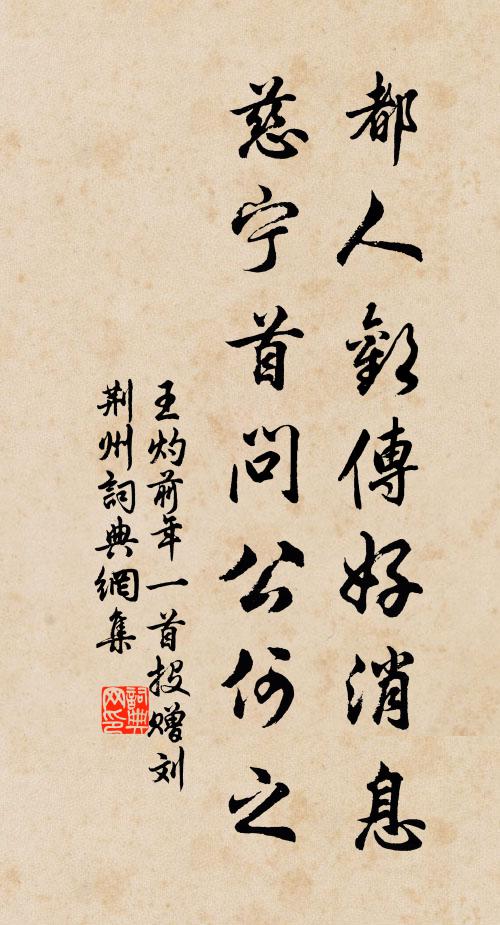 都人歡傳好消息
慈宁首問公何之
王灼前年一首投赠刘
荆州詞典網集
詞典
网印